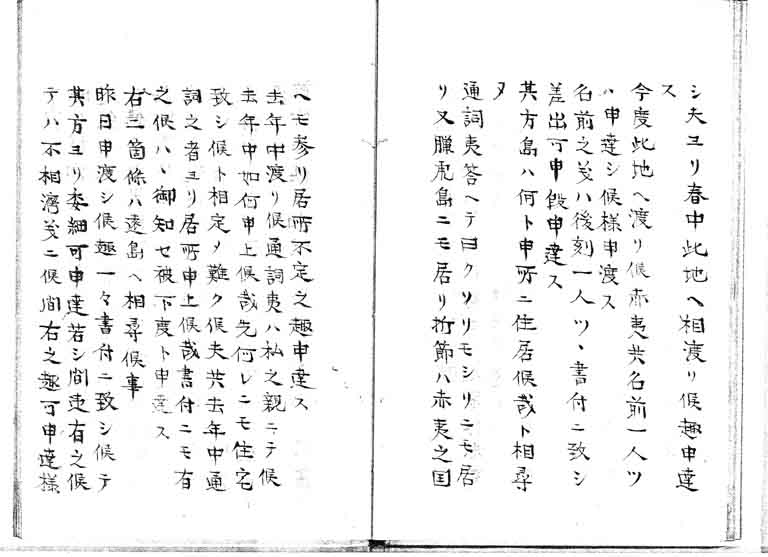 シ夫ヨリ春中此地ヘ相渡リ候趣申達
ス
今度此地ヘ渡リ候赤夷共名前一人ツ
ハ申達シ候様申渡ス
名前之義ハ後刻一人ツヽ書付ニ致シ
差出可申段申達ス
其方島ハ何ト申所ニ住居候哉ト相尋
ヌ
通詞夷答ヘテ曰クソリモシリニモ居
リ又臘虎島ニモ居リ折節ハ赤夷之国
ヘモ参リ居所不定之趣申達ス
去年中渡リ候通詞夷ハ私之親ニテ候
去年中如何申上候哉先何レニモ住宅
致シ候ト相定メ難ク候夫共去年中通
詞之者ヨリ居所申上候哉書付ニモ有
之候ハヽ御知セ被下度ト申達ス
右三箇條ハ遠島ヘ相尋候事
昨日申渡シ候趣一々書付ニ致シ候テ
其方ヨリ委細可申達若シ間違有之候
テハ不相濟義ニ候間右之趣可申達様